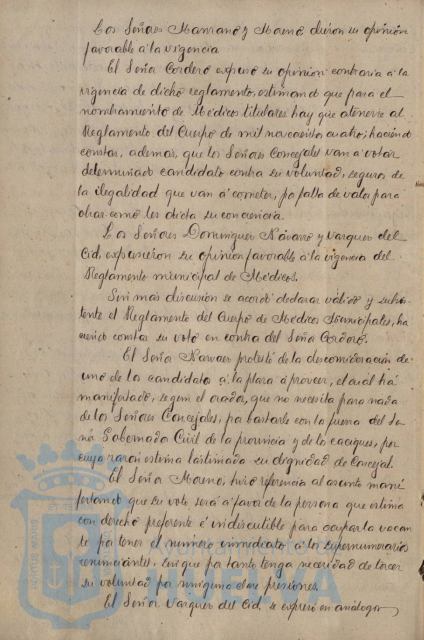 Los Señores Manzano y Moreno dieron su opinión
favorable á la vigencia
El Señor Cordero expresó su opinion contraria á la
vigencia de dicho reglamento, estimando que para el
nombramiento de Médicos titulares hay que atenerse al
Reglamento del Cuerpo de mil novecientos cuatro; haciendo
constar, además, que los Señores Concejales van á votar
determinado candidato contra su voluntad, seguros de
la ilegalidad que van á cometer, por falta de valor para
obrar como les dicta su conciencia.
Los Señores Dominguez Navarro y Vazquez del
Cid, expusieron su opinion favorable á la vigencia del
Reglamento municipal de Médicos.
Sin mas discusión se acordó declarar válido y subsis-
tente el Reglamento del Cuerpo de Médicos Municipales, ha
ciendo constar su voto en contra del Señor Cordero.
El Señor Narvaez protestó de la desconsideración de
uno de los candidatos á la plaza á proveer, el cual há
manifestado, segun el orador, que no necesita para nada
de los Señores Concejales, por bastarle con la fuerza del Se-
ñor Gobernador Civil de la provincia y de los caciques, por
cuya razon estima lastimada su dignidad de Concejal.
El Señor Moreno, hizo referencia al asunto mani-
festando que su voto será á favor de la persona que estima
con derecho preferente é indiscutible para ocupar la vacan
te por tener el numero inmediato á los supernumerarios
renunciantes, sin que por tanto tenga necesidad de torcer
su voluntad por ninguna clase presiones.
El Señor Vazquez del Cid, se expresó en análogos
Ayuntamiento
LUCENA